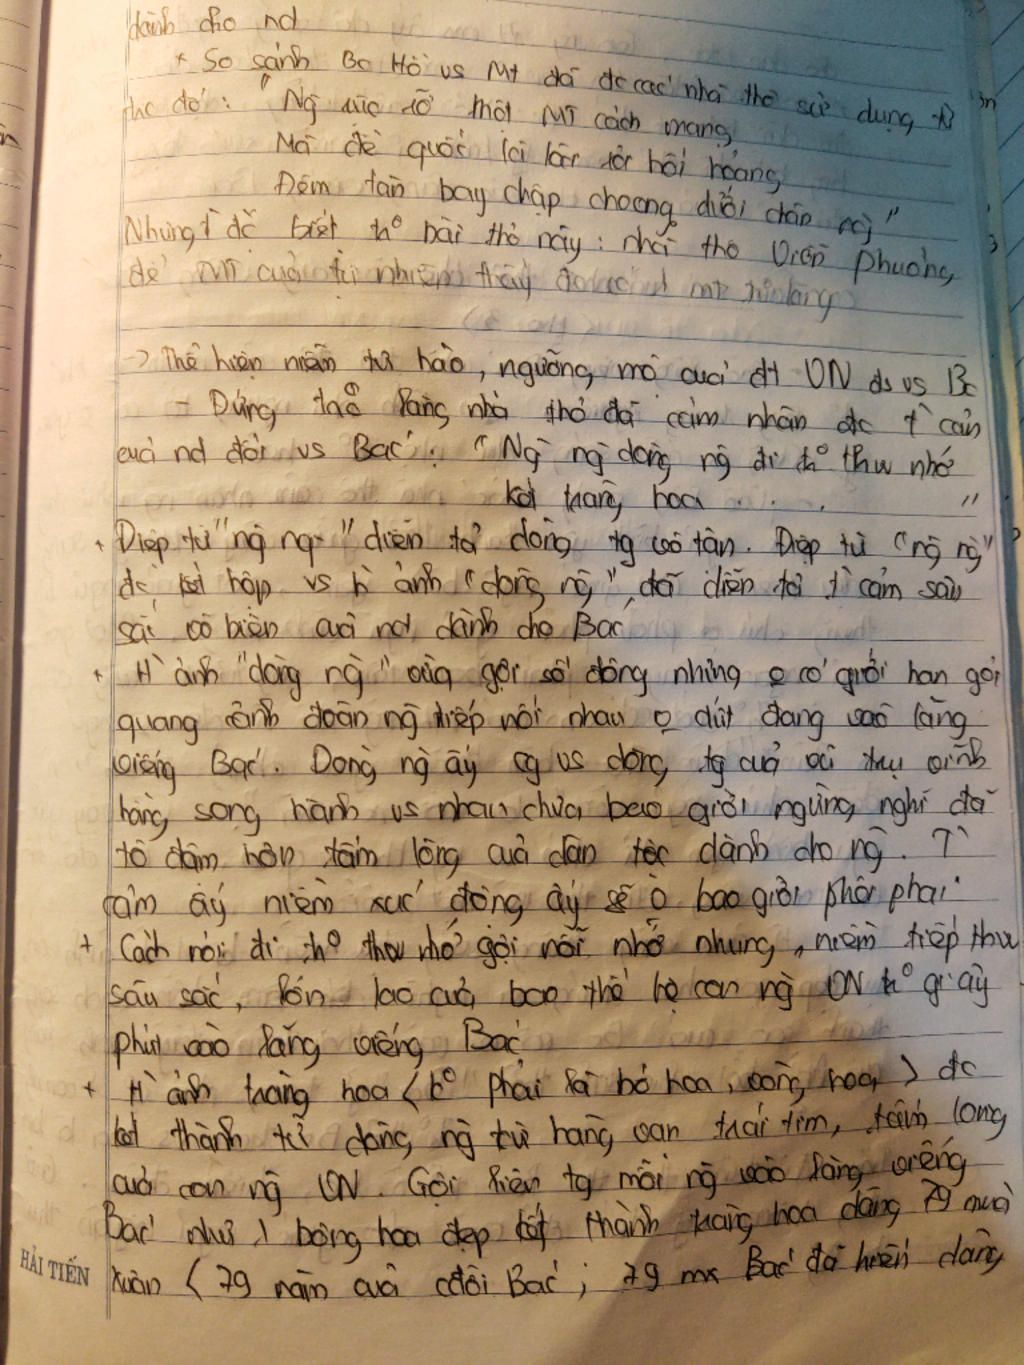 dành cho nd
* So sánh Bc Hồ vs Mt đã đc các nhà thơ sử dụng
đó : "Ng rực rỡ một MT cách mạng
Mà đế quốc là loài dơi hốt hoảng
Đêm tàn bay chập choạng dưới chân ng"
Nhưng biết bài thơ này : nhà thơ Viễn Phương
để MT của tự nhiên thấy đc 1 mt lăng
-> Thể hiện niềm tự hào, ngưỡng mộ của dt VN đs vs Bc
- Đứng lăng nhà thơ đã cảm nhận đc t̀ cảm
của nd đối vs Bác : "Ng ng dòng ng đi thương nhớ
Kết tràng hoa . . . . "
+ Điệp từ "ng ng" diễn tả dòng tg vô tận. Điệp từ "ng ng"
đc kết hợp vs h̀ ảnh "dòng ng", đã diễn tả t̀ cảm sâu
sắc vô biên của nd dành cho Bác
+ H̀ ảnh "dòng ng" vừa gợi số đông những o có giới hạn gợi
quang cảnh đoàn ng tiếp nối nhau o dứt đang vào lăng
viếng Bác. Dòng ng ấy cg vs dòng tg của vũ trụ vĩnh
hằng song hành vs nhau chưa bao giời ngừng nghỉ đã
tô đậm hơn tấm lòng của dân tộc dành cho ng. T̀
cảm ấy niềm xúc động ấy sẽ o bao giời phôi phai
+ Cách nói đi thương nhớ gợi nỗi nhớ nhung, niềm tiếp thu
sâu sắc, lớn lao của bao thế hệ con ng VN giây
phút vào lăng viếng Bác
+ H̀ ảnh tràng hoa ( k⁰ phải là bó hoa, vòng hoa ) đc
kết thành từ dòng ng từ hàng vạn trái tim, tấm lòng
của con ng VN. Gợi liên tg mỗi ng vào lăng viếng
Bác như 1 bông hoa đẹp kết thành tràng hoa dâng 79 mùa
xuân ( 79 năm của cđời Bác ; 79 mx Bác đã hiến dâng
HẢI TIẾN